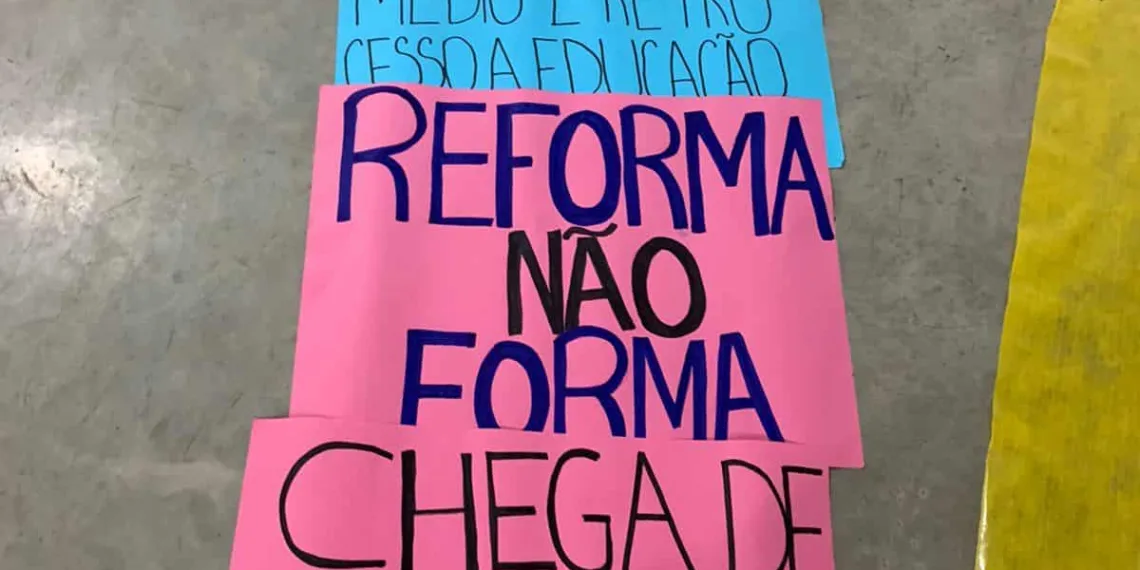 MEDIO E RETRO
CESSO A EDUCAÇÃO
REFORMA
NÃO
FORMA
CHEGA DE